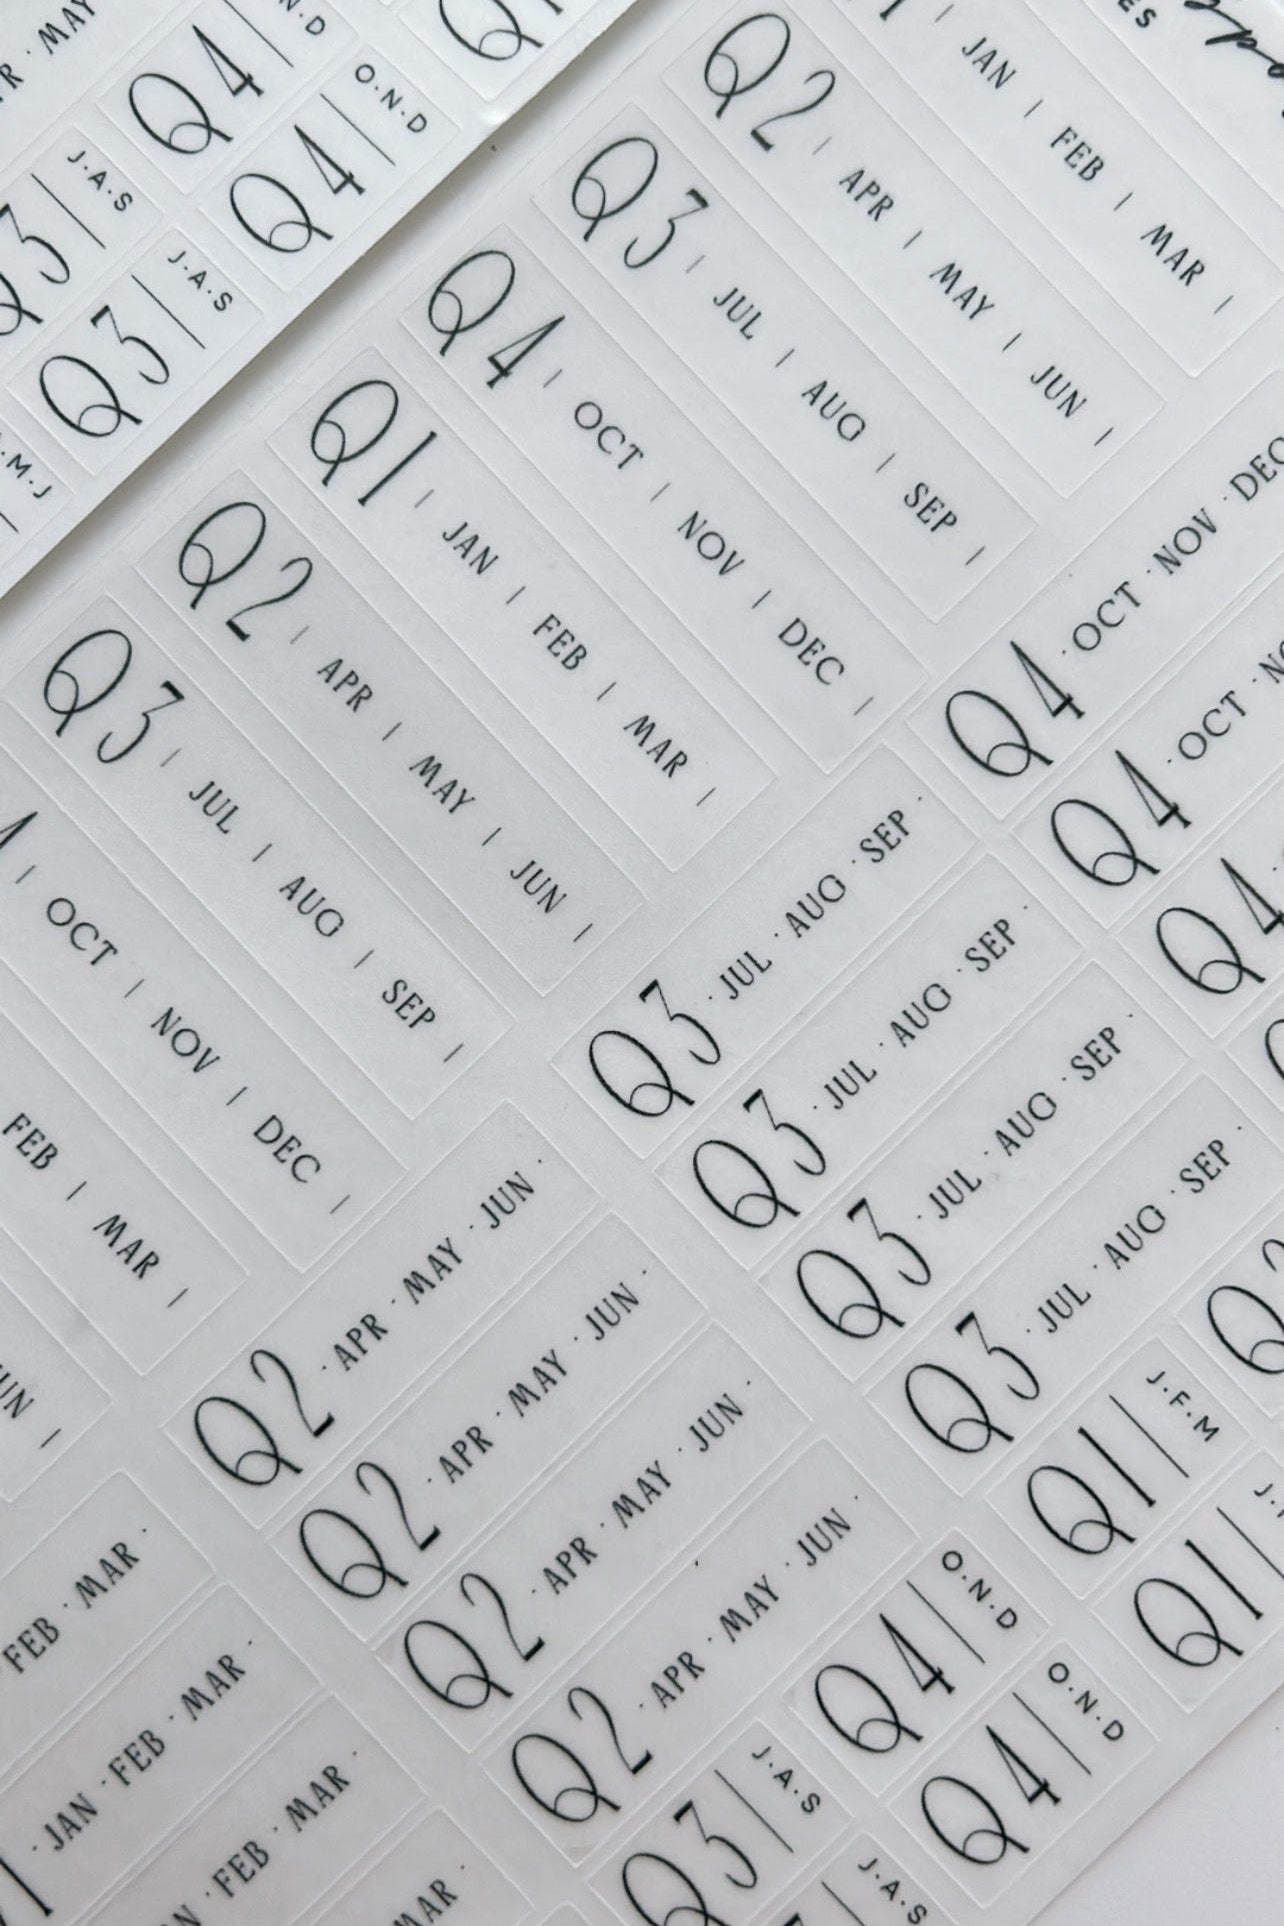 MAY
Q4 | N·D
Q4 | O·N·D
Q3 | J·A·S
Q3 | J·A·S
M·J
ES
JAN | FEB | MAR |
Q2 | APR | MAY | JUN |
Q3 | JUL | AUG | SEP |
Q4 | OCT | NOV | DEC |
Q1 | JAN | FEB | MAR |
Q2 | APR | MAY | JUN |
Q3 | JUL | AUG | SEP |
| OCT | NOV | DEC |
FEB | MAR |
Q4 · OCT · NOV · DEC
Q4 · OCT ·
Q4 ·
Q3 · JUL · AUG · SEP ·
Q3 · JUL · AUG · SEP ·
Q3 · JUL · AUG · SEP ·
Q3 · JUL · AUG · SEP ·
Q2 · APR · MAY · JUN ·
Q2 · APR · MAY · JUN ·
Q2 · APR · MAY · JUN ·
Q2 · APR · MAY · JUN ·
FEB · MAR ·
· JAN · FEB · MAR ·
· FEB · MAR ·
MAR ·
Q1 | J·F·M
Q1 |
Q4 | O·N·D
Q4 | O·N·D
Q3 | J·A·S
J·A·S